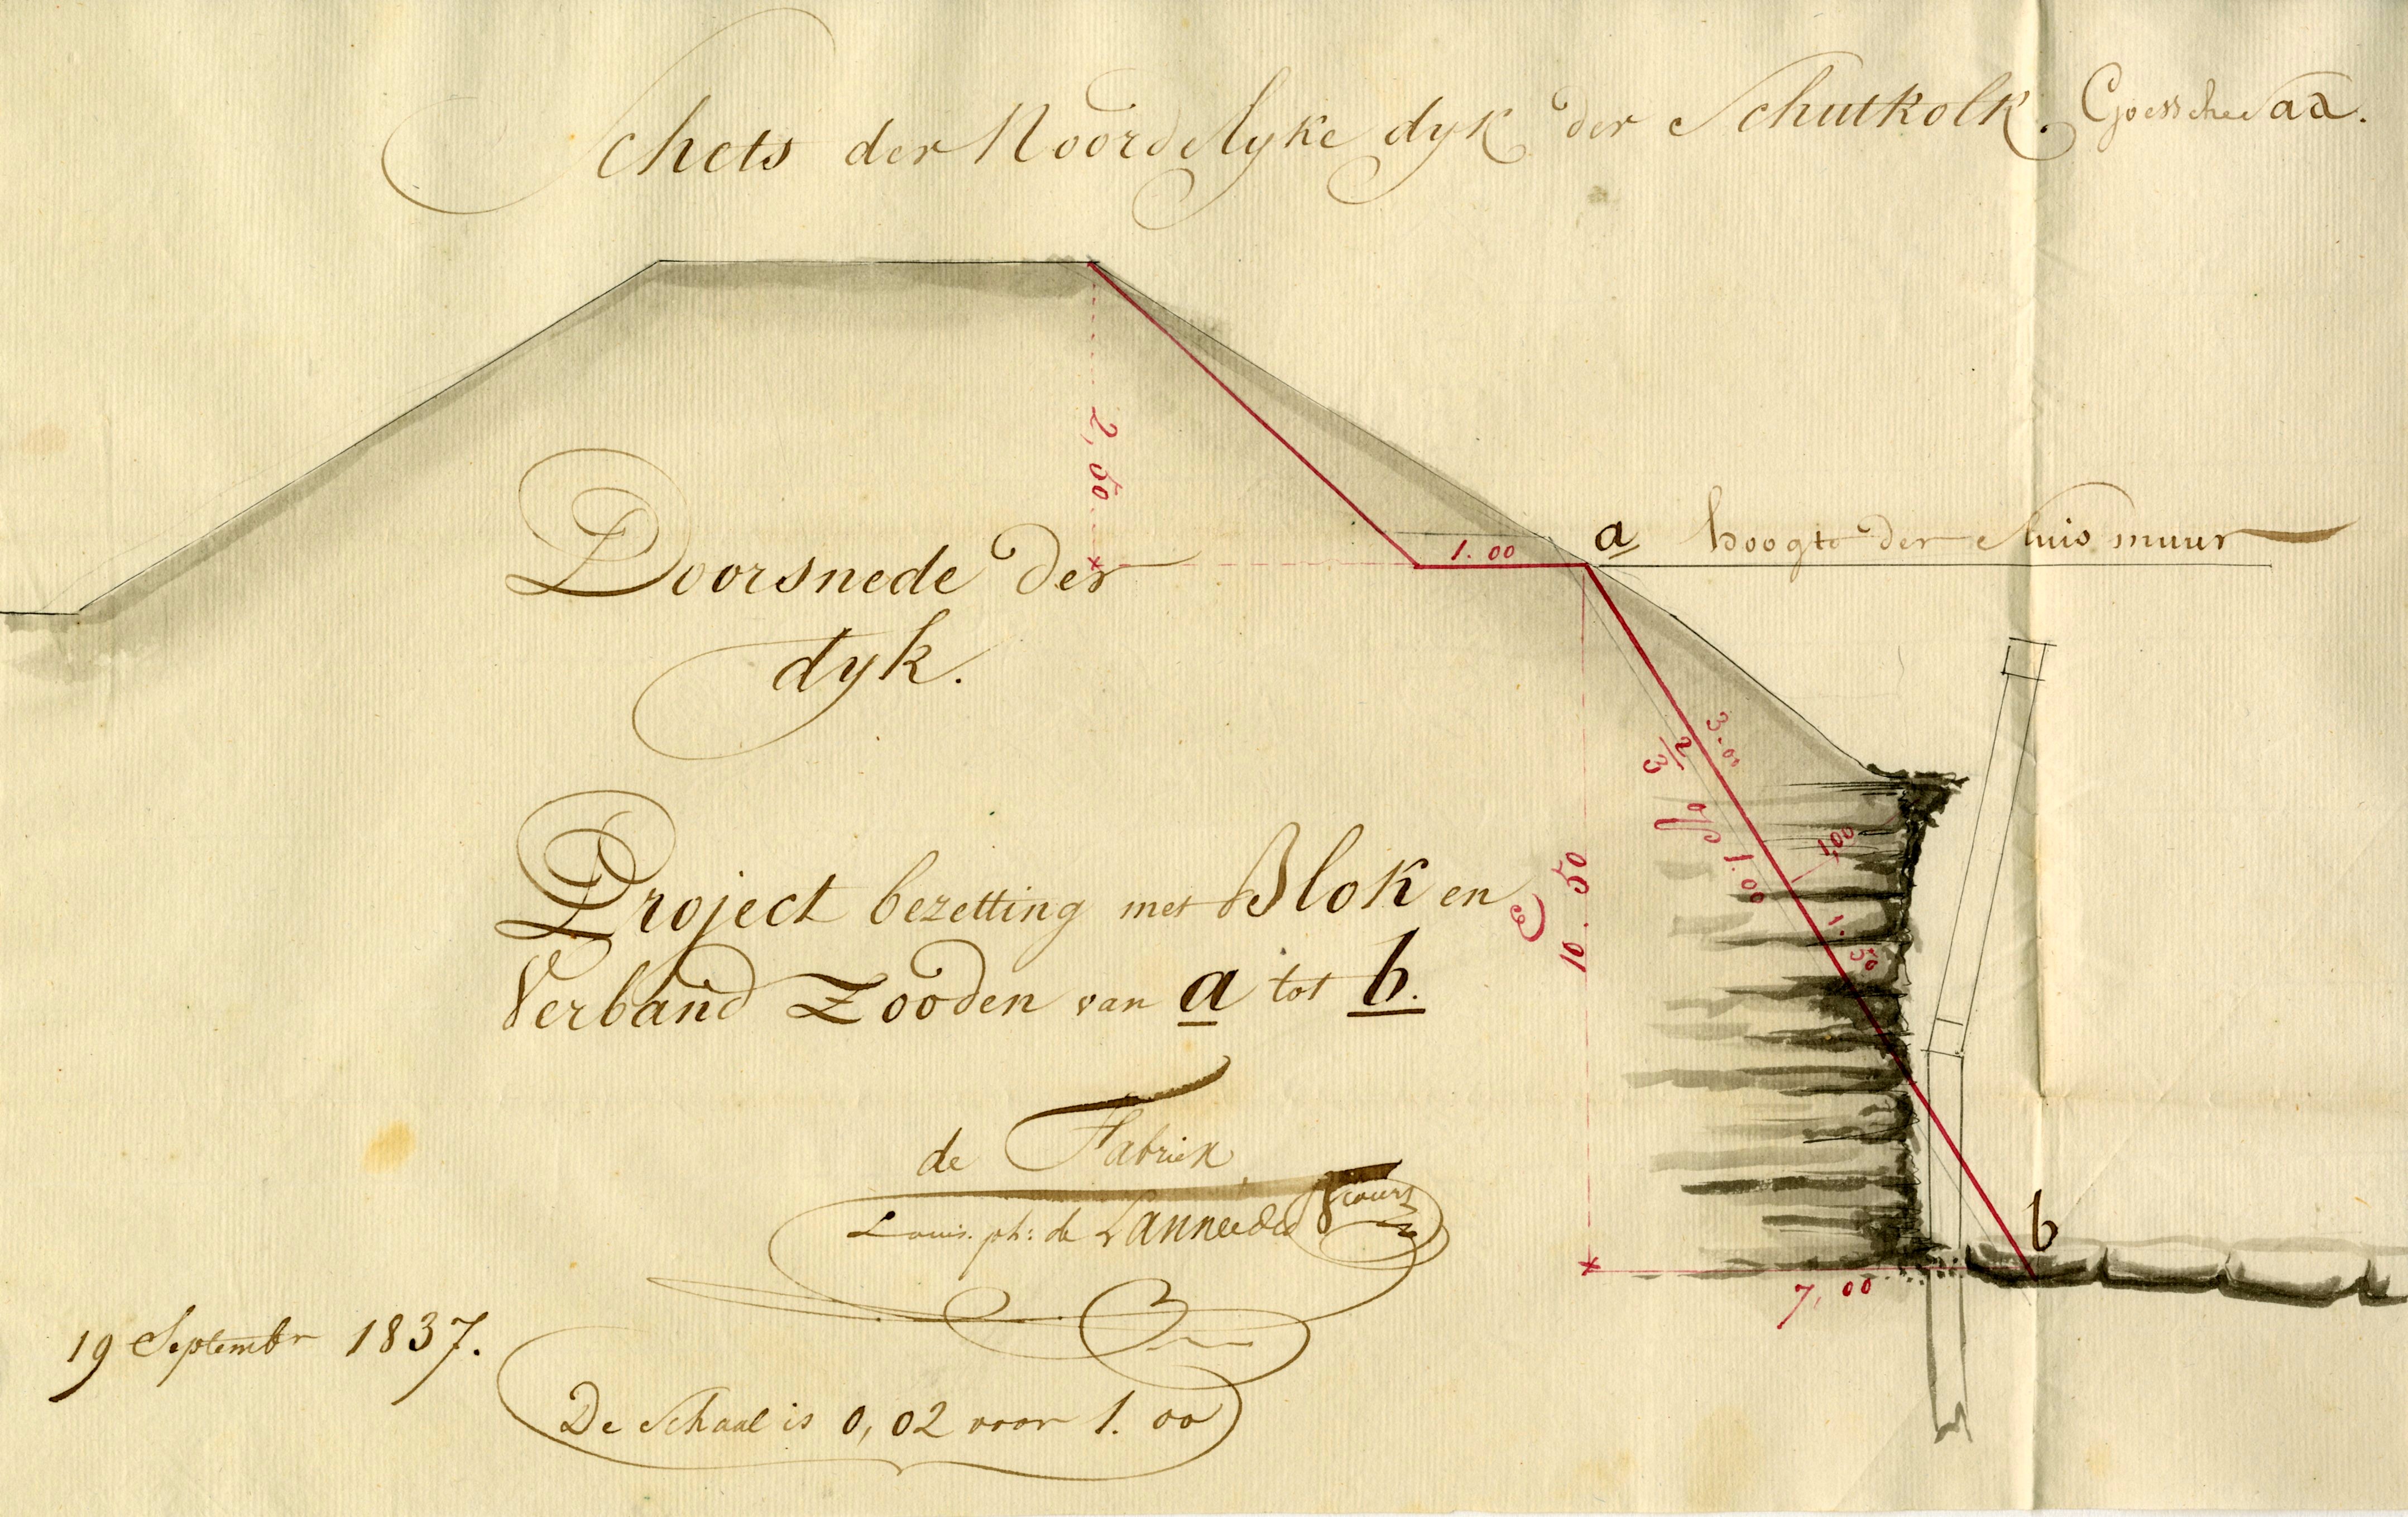 Schets der Noordelyke dyk der Schutkolk. Goessche sas.
2,50
1.00
a hoogte der sluis muur
Doorsnede der
dyk.
3.00
2/3
op 1.00
1,00
1.50
10.50
Project bezetting met Blok en
Verband Zooden van a tot b.
de Fabriek
Louis. ph: de
b
7,00
19 Septembr 1837.
De Schaal is 0,02 voor 1.00